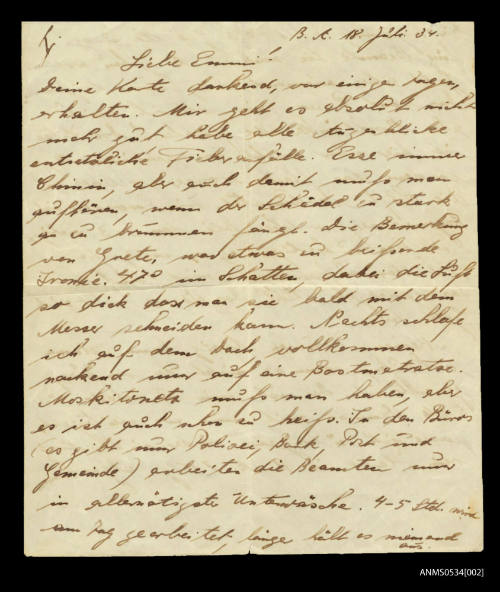 B. A. 18. Juli 34.
Liebe Emmi!
Deine Karte dankend, vor einigen Tagen,
erhalten. Mir geht es absolut nicht
mehr gut, habe alle Augenblicke
entsetzliche Fieberanfälle. Esse immer
Chinin, aber auch damit muß man
aufhören, wenn der Schädel zu stark
an zu brummen fängt. Die Bemerkung
von Grete, war etwas zu beißende
Ironie. 47° im Schatten, dabei die Luft
so dick das man sie bald mit dem
Messer schneiden kann. Nachts schlafe
ich auf dem Dach vollkommen
nackend nur auf eine Bastmatratze.
Moskitonetz muß man haben, aber
es ist auch zu heiß. In den Büros
(es gibt nur Polizei, Bank, Post und
Gemeinde) arbeiten die Beamten nur
in allernötigste Unterwäsche. 4-5 Std. wird
am Tag gearbeitet, länger hält es niemand
aus.
ANMS0534[002]